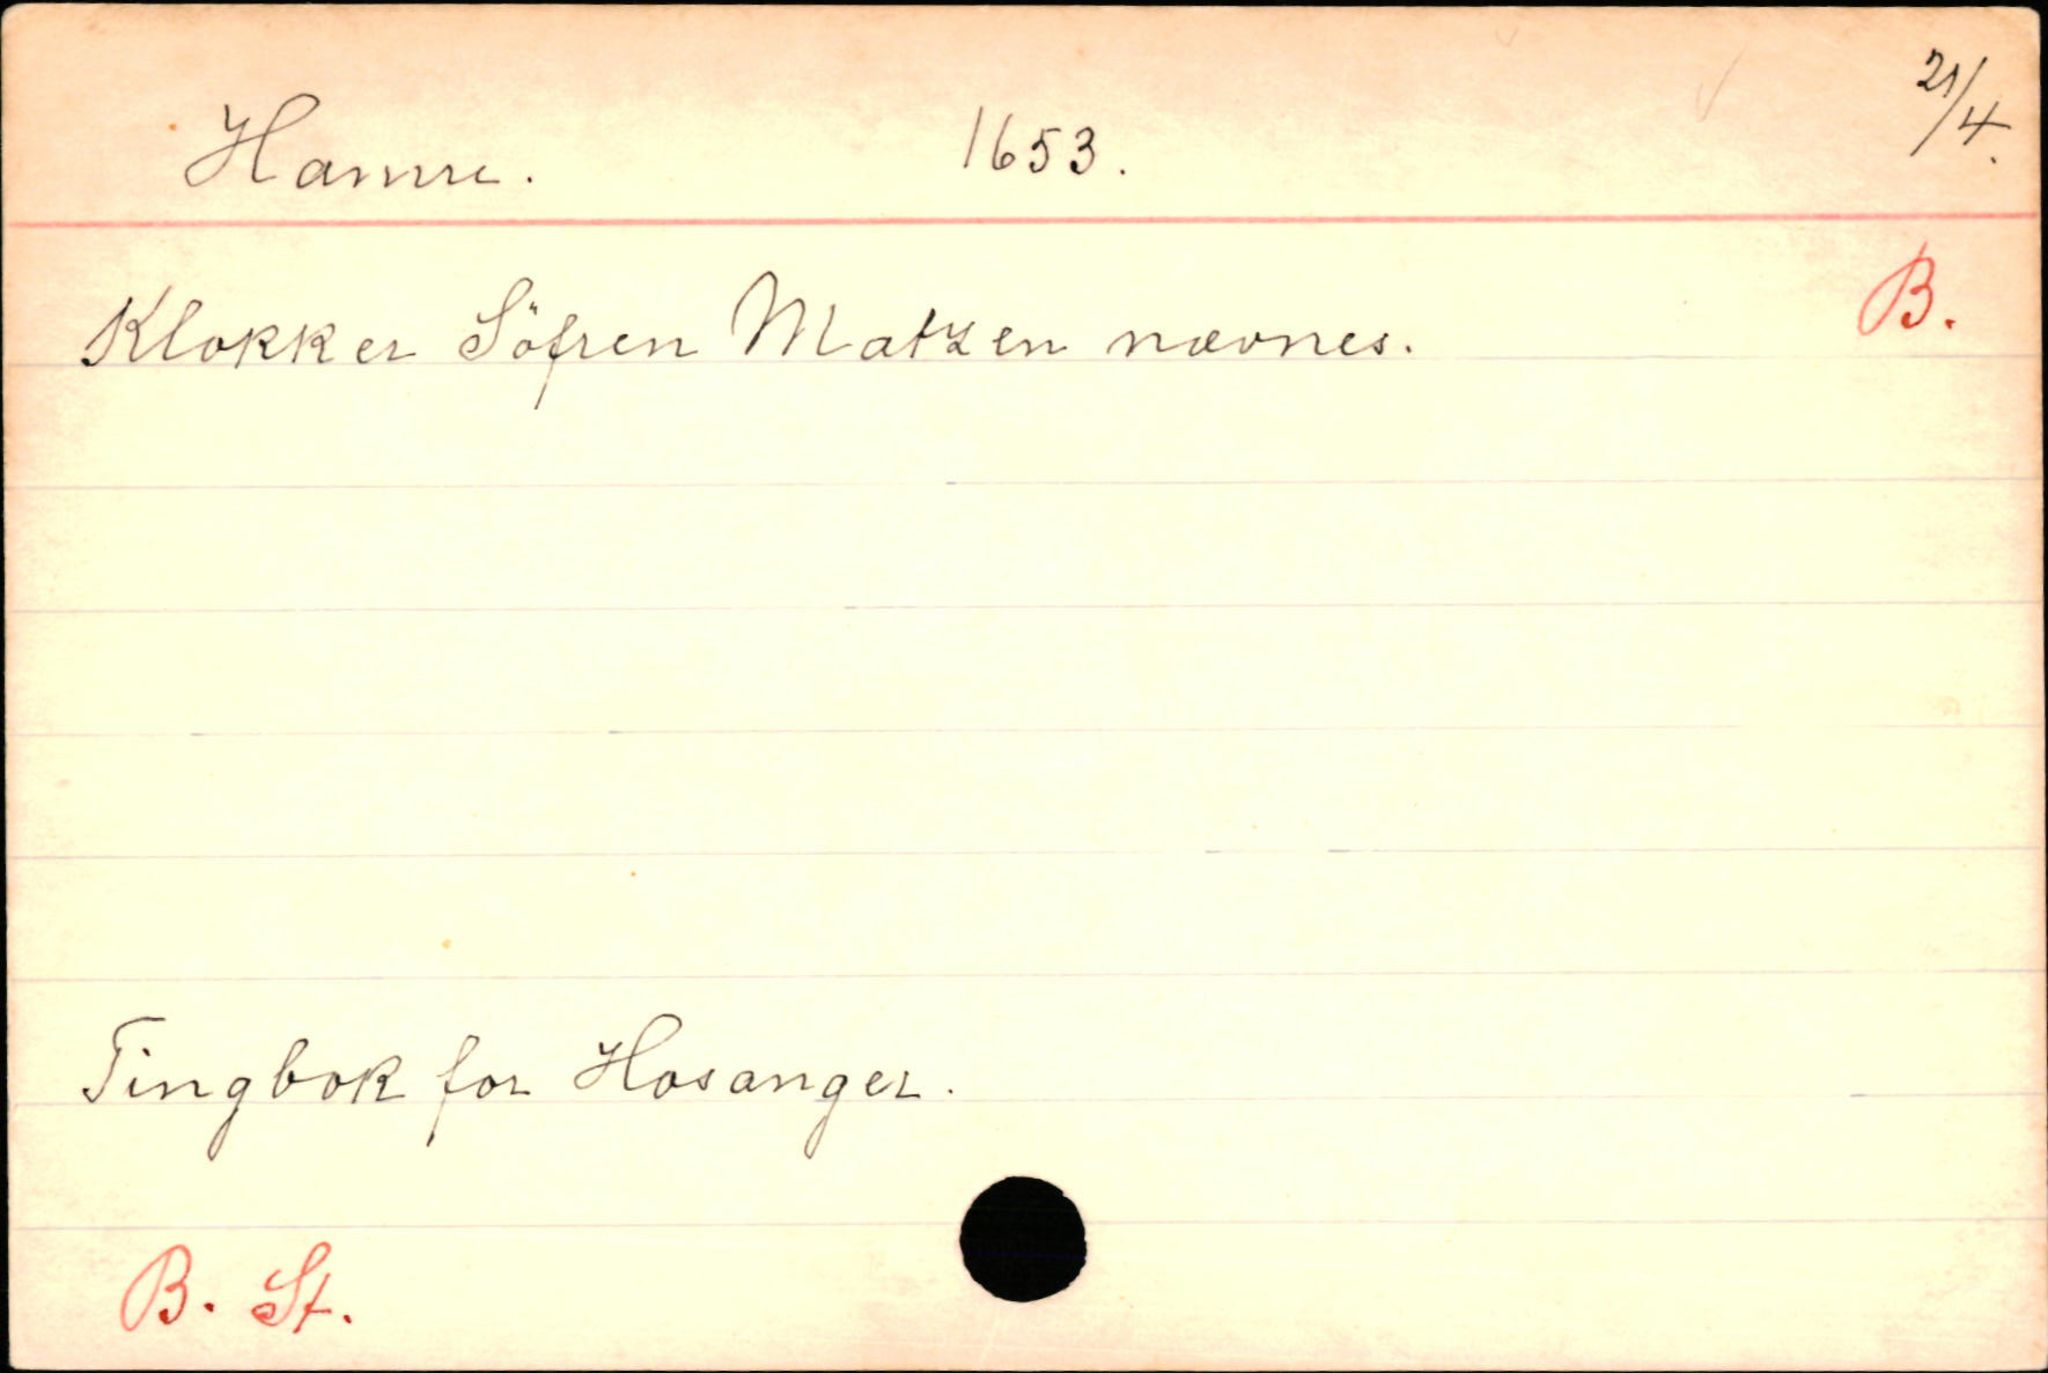 Hamre. 1653. 21/4.
B.
Klokker Söfren Matzen nævnes.
Tingbok for Hosanger.
B. St.